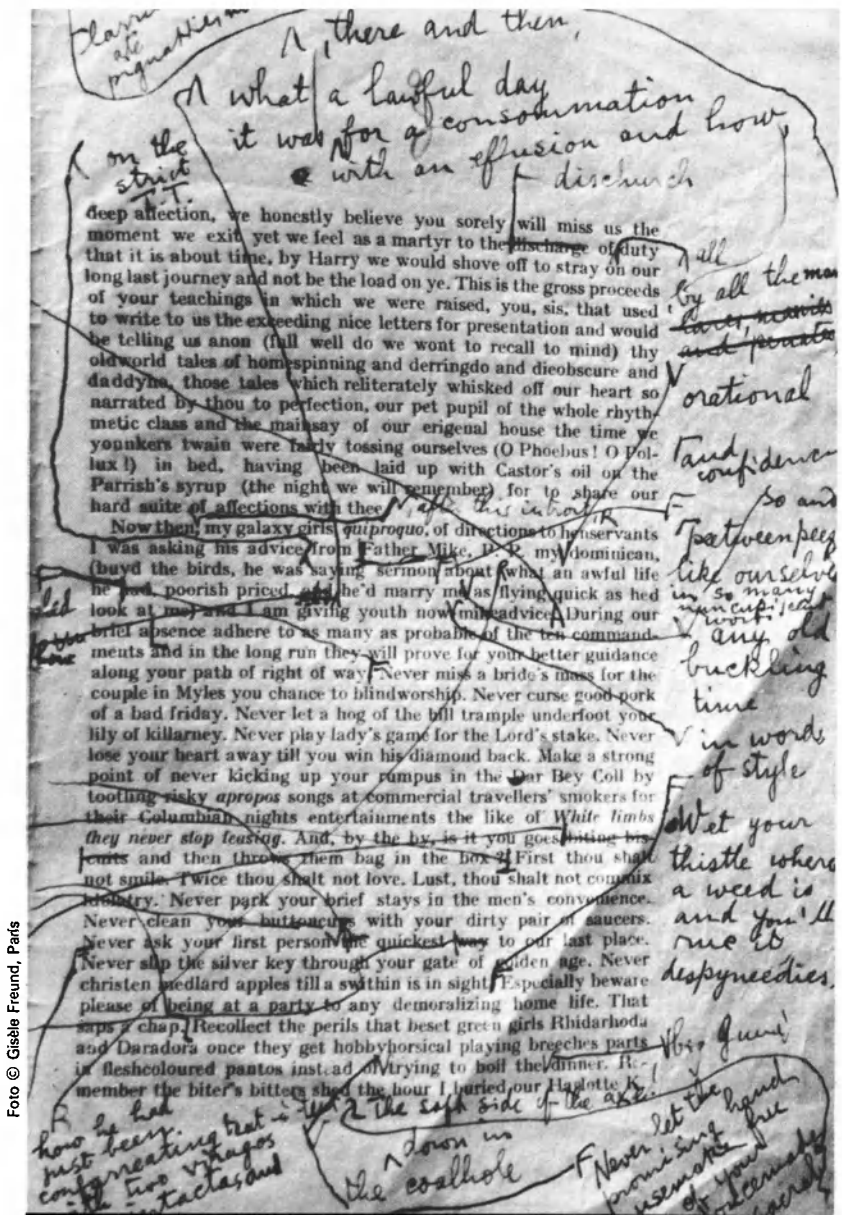 Classic
ate
, there and then,
what a lawful day
it was for a consommation
with an effusion and how
on the
strict
T.T.
dischurch
deep affection, we honestly believe you sorely will miss us the
moment we exit yet we feel as a martyr to the discharge of duty
that it is about time, by Harry we would shove off to stray on our
long last journey and not be the load on ye. This is the gross proceeds
of your teachings in which we were raised, you, sis, that used
to write to us the exceeding nice letters for presentation and would
be telling us anon (full well do we wont to recall to mind) thy
oldworld tales of homespinning and derringdo and dieobscure and
daddyho, those tales which reliterately whisked off our heart so
narrated by thou to perfection, our pet pupil of the whole rhyth-
metic class and the mainsay of our erigenal house the time we
younkers twain were fairly tossing ourselves (O Phoebus! O Pol-
lux!) in bed, having been laid up with Castor's oil on the
Parrish's syrup (the night we will remember) for to share our
hard suite of affections with thee.
, after this introit,
Now then, my galaxy girls, quiproquo, of directions to henservants
I was asking his advice from Father Mike, P. P. my dominican,
(buyd the birds, he was saying sermon about what an awful life
he had, poorish priced he'd marry me as flying quick as hed
look at me) and I am giving youth now mile advice. During our
brief absence adhere to as many as probable of the ten command-
ments and in the long run they will prove for your better guidance
along your path of right of way. Never miss a bride's mass for the
couple in Myles you chance to blindworship. Never curse good pork
of a bad friday. Never let a hog of the bill trample underfoot your
lily of killarney. Never play lady's game for the Lord's stake. Never
lose your heart away till you win his diamond back. Make a strong
point of never kicking up your rumpus in the Dar Bey Coll by
tootling risky apropos songs at commercial travellers' smokers for
their Columbian nights entertainments the like of White limbs
they never stop teasing. And, by the by, is it you goes biting bis-
cuits and then throws them bag in the box? First thou shalt
not smile. Twice thou shalt not love. Lust, thou shalt not commix
idolatry. Never park your brief stays in the men's convenience.
Never clean your buttoncups with your dirty pair of saucers.
Never ask your first person the quickest way to our last place.
Never slip the silver key through your gate of golden age. Never
christen medlard apples till a swithin is in sight. Especially beware
please of being at a party to any demoralizing home life. That
saps a chap. Recollect the perils that beset green girls Rhidarhoda
and Daradora once they get hobbyhorsical playing breeches parts
in fleshcoloured pantos instead of trying to boil the dinner. R-
member the biter's bitters shed the hour I buried our Haglotte K
all
by all the
lares, manits
and penates
orational
and
confidence
so and
between peep
like ourselves
in so many
words
any old
buckling
time
in words
of style
Wet your
thistle where
a weed is
and you'll
rue it
despyneedies.
how he had
just been
confarreating
with two viragos
intactas and
The soft side of the axe!
down in
the coalhole
Never let the
promising hand
usemake free
of your
Foto © Gisèle Freund, Paris